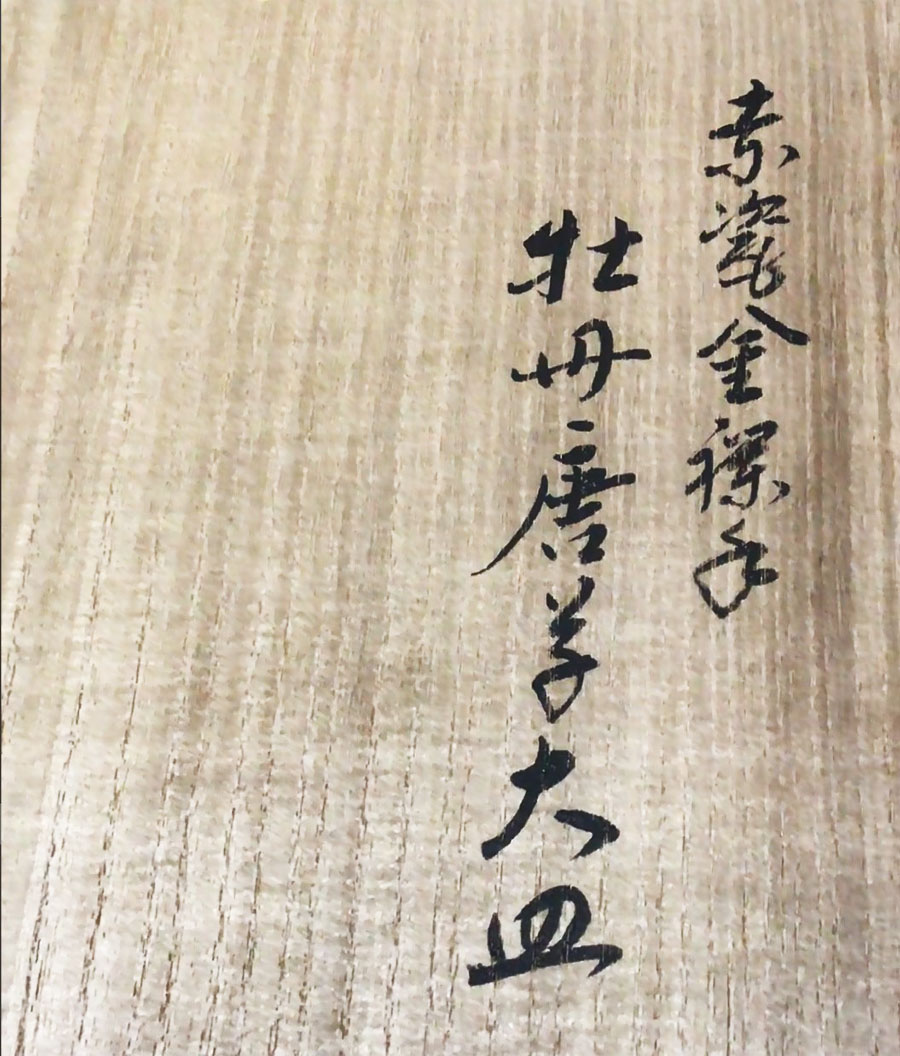 赤瓷金襴手
牡丹唐草大皿